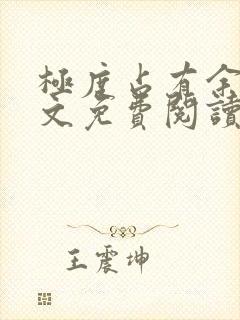 極度占有余
文免費閱讀
王震坤